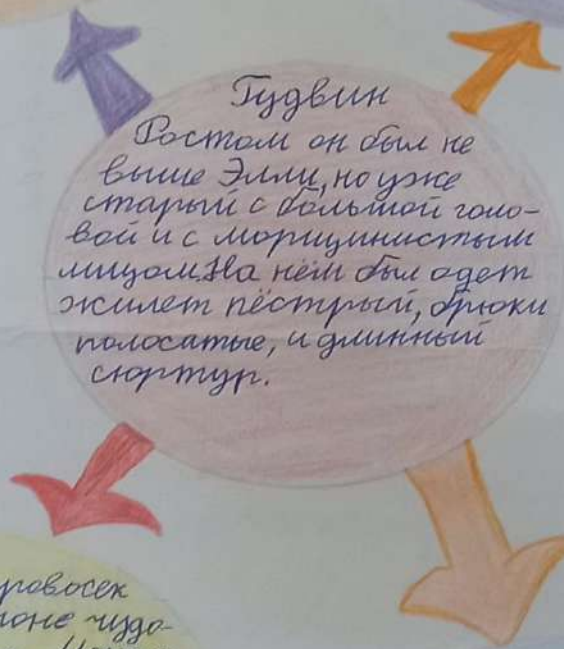 Гудвин
Ростом он был не
выше Элли, но уже
старый с большой голо-
вой и с морщинистым
лицом. На нём был одет
жилет пёстрый, брюки
полосатые, и длинный
сюртур.
ровосек
оне чудо-